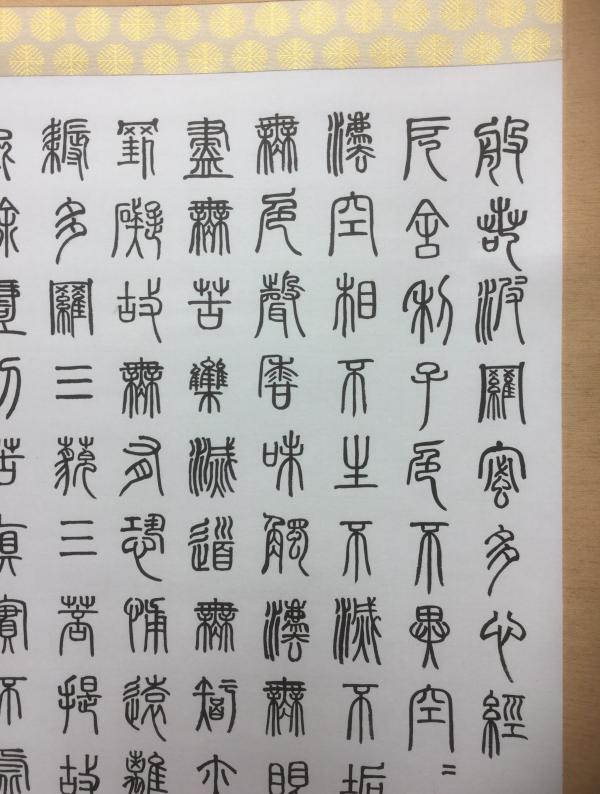 般若波羅蜜多心經
厄舍利子色不異空〻
法空相不生不滅不垢
無色聲香味觸法無眼
盡無苦集滅道無智亦
罣礙故無有恐怖遠離
耨多羅三藐三菩提故
除壹切苦真實不虛